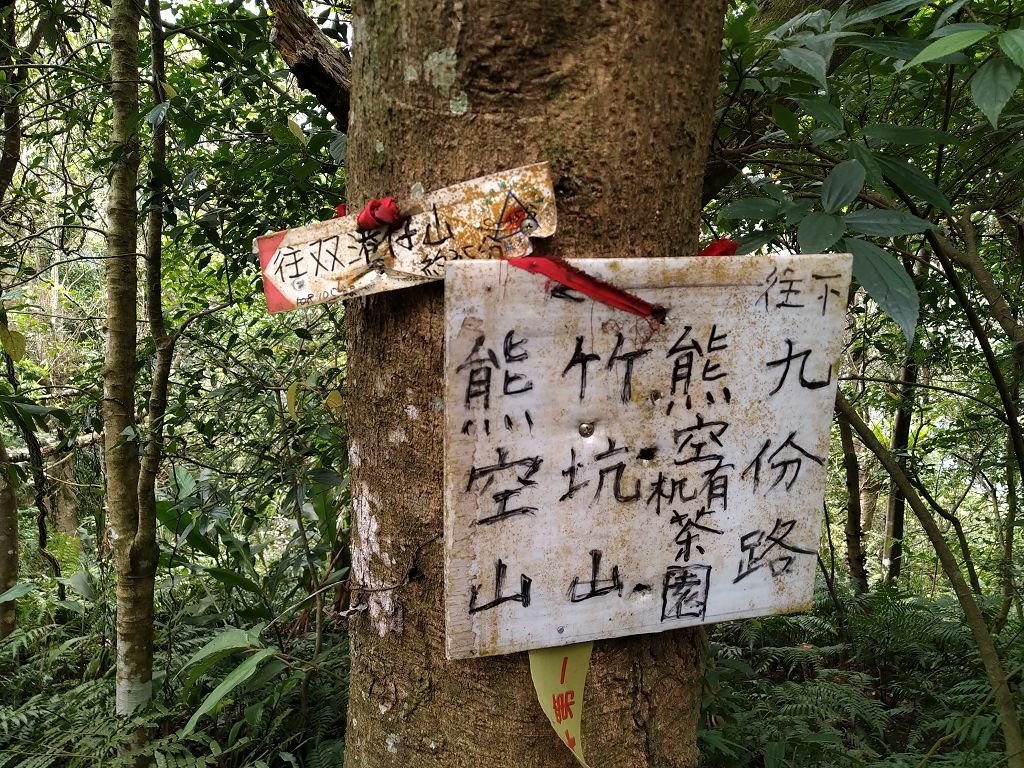 往双溪仔山
往下
九份路
熊空
有机
茶園
竹坑山
熊空山